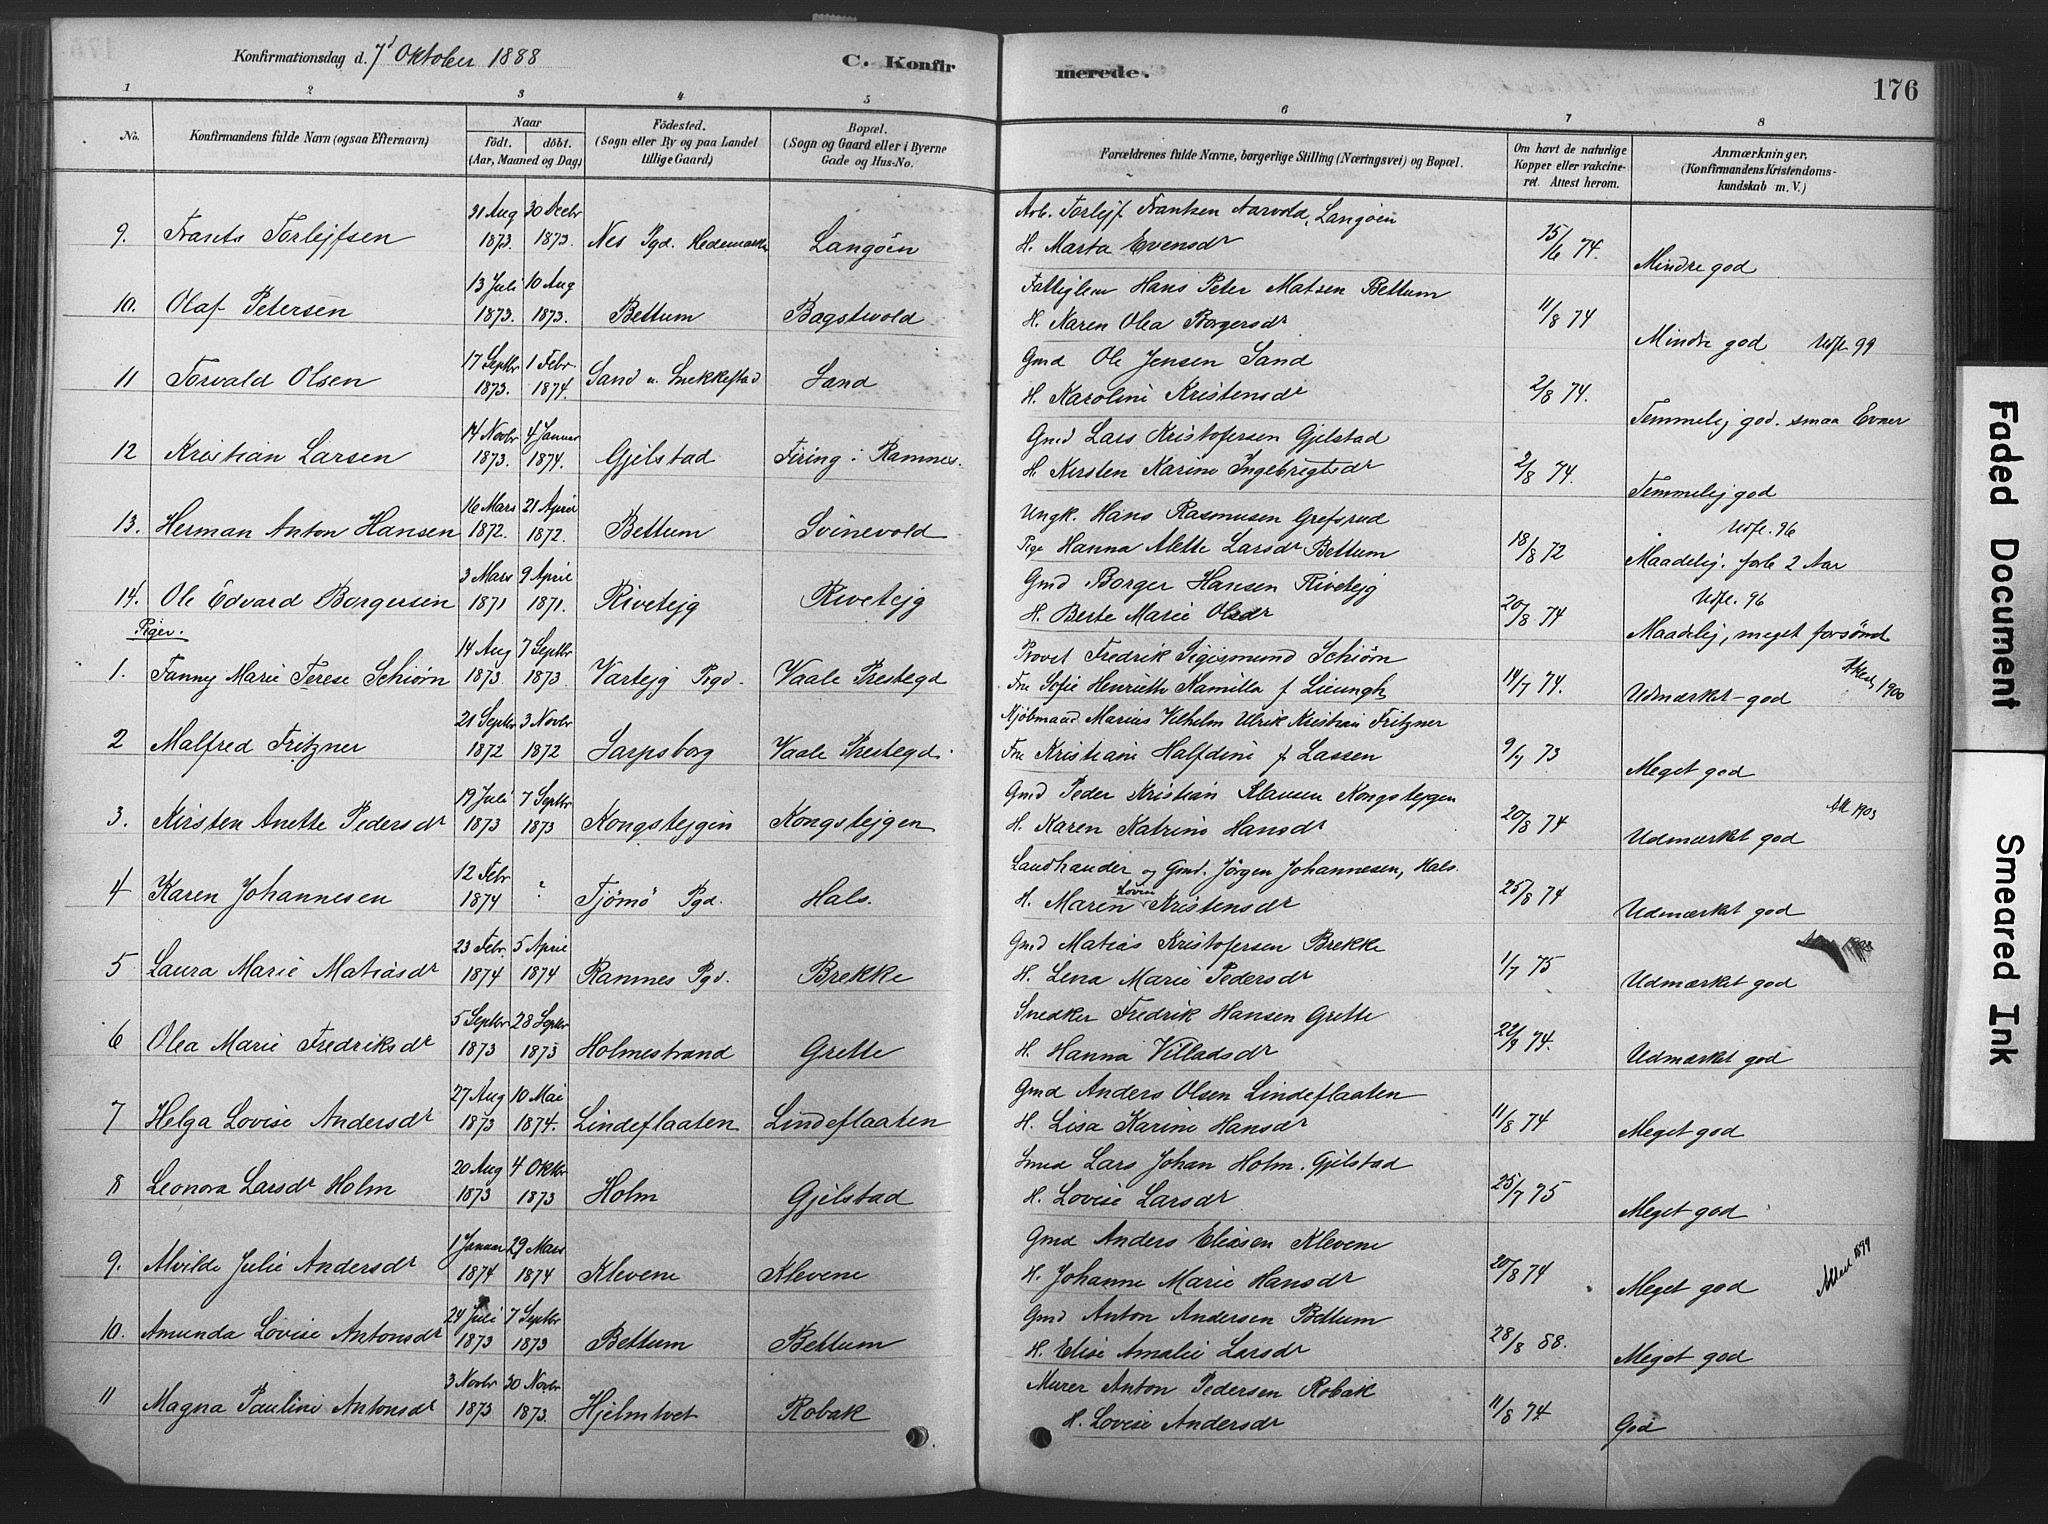 Konfirmationsdag d. 7d Oktober 1888 C. Konfir merede. 176
1 2 3 4 5 6 7 8
No. Konfirmandens fulde Navn (ogsaa Efternavn) Naar födt. döbt. (Aar, Maaned og Dag) Födested. (Sogn eller By og paa Landet tillige Gaard) Bopæl. (Sogn og Gaard eller i Byerne Gade og Hus-No. Forældrenes fulde Navne, borgerlige Stilling (Næringsvei) og Bopæl. Om havt de naturlige Kopper eller vakcineret. Attest herom. Anmærkninger. (Konfirmandens Kristendomskundskab m. V.)
21 Aug 30 Decbr Arb. Torlejf Frantzen Aarvold, Langöen
9. Frants Torlejfsen 1873. 1873. Nes Pgd. Hedemarken Langöen H. Marta Evensdr 15/6 74. Mindre god
13 Juli 10 Aug Fattiglem Hans Peter Matsen Bettum
10. Olaf Petersen 1873. 1873. Bettum Bagstevold H. Karen Olea Borgersdr 11/8 74 Mindre god Udfl. 99
17 Septbr 1 Febr Gmd Ole Jensen Sand
11 Torvald Olsen 1873. 1874. Sand u. Snekkestad Sand H. Karoline Kristensdr 2/8 74. Temmelij god. smaa Evner
14 Novbr 4 Januar Gmd Lars Kristofersen Gjelstad
12 Kristian Larsen 1873. 1874. Gjelstad Firing i Ramnes. H. Kirsten Karine Ingebrigtsdr 2/8 74. Temmelij god
16 Mars 21 April Ungk. Hans Rasmusen Grefsrud Udfl. 96
13. Herman Anton Hansen 1872. 1872. Bettum Svinevold Pige Hanna Alette Larsdr Bettum 18/8 72 Maadelij. forb 2 Aar
3 Mars 9 April Gmd Borger Hansen Rivetejg Udfl. 96
14. Ole Edvard Borgersen 1871 1871. Rivetejg Rivetejg H. Berte Marie Olsdr 20/8 74 Maadelij, meget forsömt
Piger.
14 Aug 7 Septbr Provst Fredrik Sigismund Schiörn
1. Fanny Marie Terese Schiörn 1873. 1873. Vartejg Pgd. Vaale Prestegd Fru Sofie Henriette Kamilla f. Lieungh 14/7 74. Udmærket god 1900
21 Septbr 3 Novbr Kjöbmand Marius Vilhelm Ulrik Kristian Fritzner
2 Malfred Fritzner 1872 1872 Sarpsborg Vaale Prestegd. Fru Kristiane Halfdine f. Lassen 9/1 73 Meget god
19 Juli 7 Septbr Gmd Peder Kristian Klausen Kongstejgen
3. Kirsten Anette Pedersdr 1873 1873 Kongstejgen Kongstejgen H. Karen Katrine Hansdr 20/8 74 Udmærket god Att 1903
12 Febr Landhandler og Gmd. Jörgen Johannesen, Hals.
4 Karen Johannesen 1874 ? Tjömö Pgd. Hals. H. Maren Lovise Kristensdr 25/8 74 Udmærket god
23 Febr. 5 April Gmd Matias Kristofersen Brekke
5 Laura Marie Matiasdr 1874 1874 Ramnes Pgd. Brekke H. Lena Marie Pedersdr 1/7 75 Udmærket god
5 Septbr 28 Septbr Snedker Fredrik Hansen Grette
6 Olea Marie Fredriksdr 1873 1873 Holmestrand Grette H. Hanna Villadsdr 22/9 74. Udmærket god
27 Aug 10 Mai Gmd Anders Olsen Lindeflaaten
7 Helga Lovise Andersdr 1873 1874. Lindeflaaten Lindeflaaten H. Lisa Karine Hansdr 11/8 74 Meget god
20 Aug 4 Oktbr Smed Lars Johan Holm. Gjelstad
8 Leonora Larsdr Holm 1873 1873 Holm Gjelstad H. Lovise Larsdr 25/7 75 Meget god
1 Januar 29 Mars Gmd Anders Eliasen Klevene
9. Alvilde Julie Andersdr 1874 1874 Klevene Klevene H. Johanne Marie Hansdr 20/8 74 Meget god Attest 1899
24 Juli 7 Septbr Gmd Anton Andersen Bettum
10. Amunda Lovise Antonsdr 1873 1873 Bettum Bettum H. Elise Amalie Larsdr 28/8 88. Meget god
3 Novbr 30 Novbr Murer Anton Pedersen Robak
11 Magna Pauline Antonsdr 1873 1873. Hjelmtvet Robak H. Lovise Andersdr 11/8 74 God
Faded Document
Smeared Ink